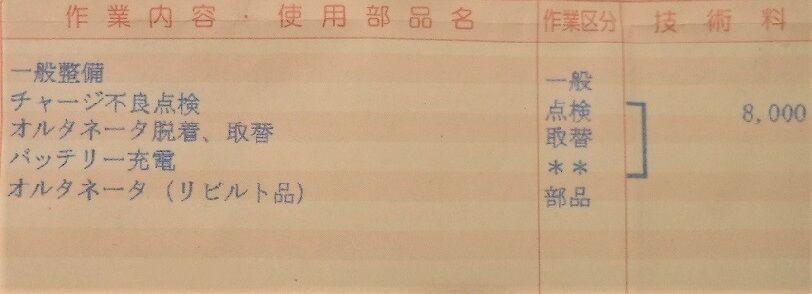 作業内容・使用部品名 作業区分 技術料
一般整備 一般
チャージ不良点検 点検 8,000
オルタネータ脱着、取替 取替
バッテリー充電 **
オルタネータ (リビルト品) 部品